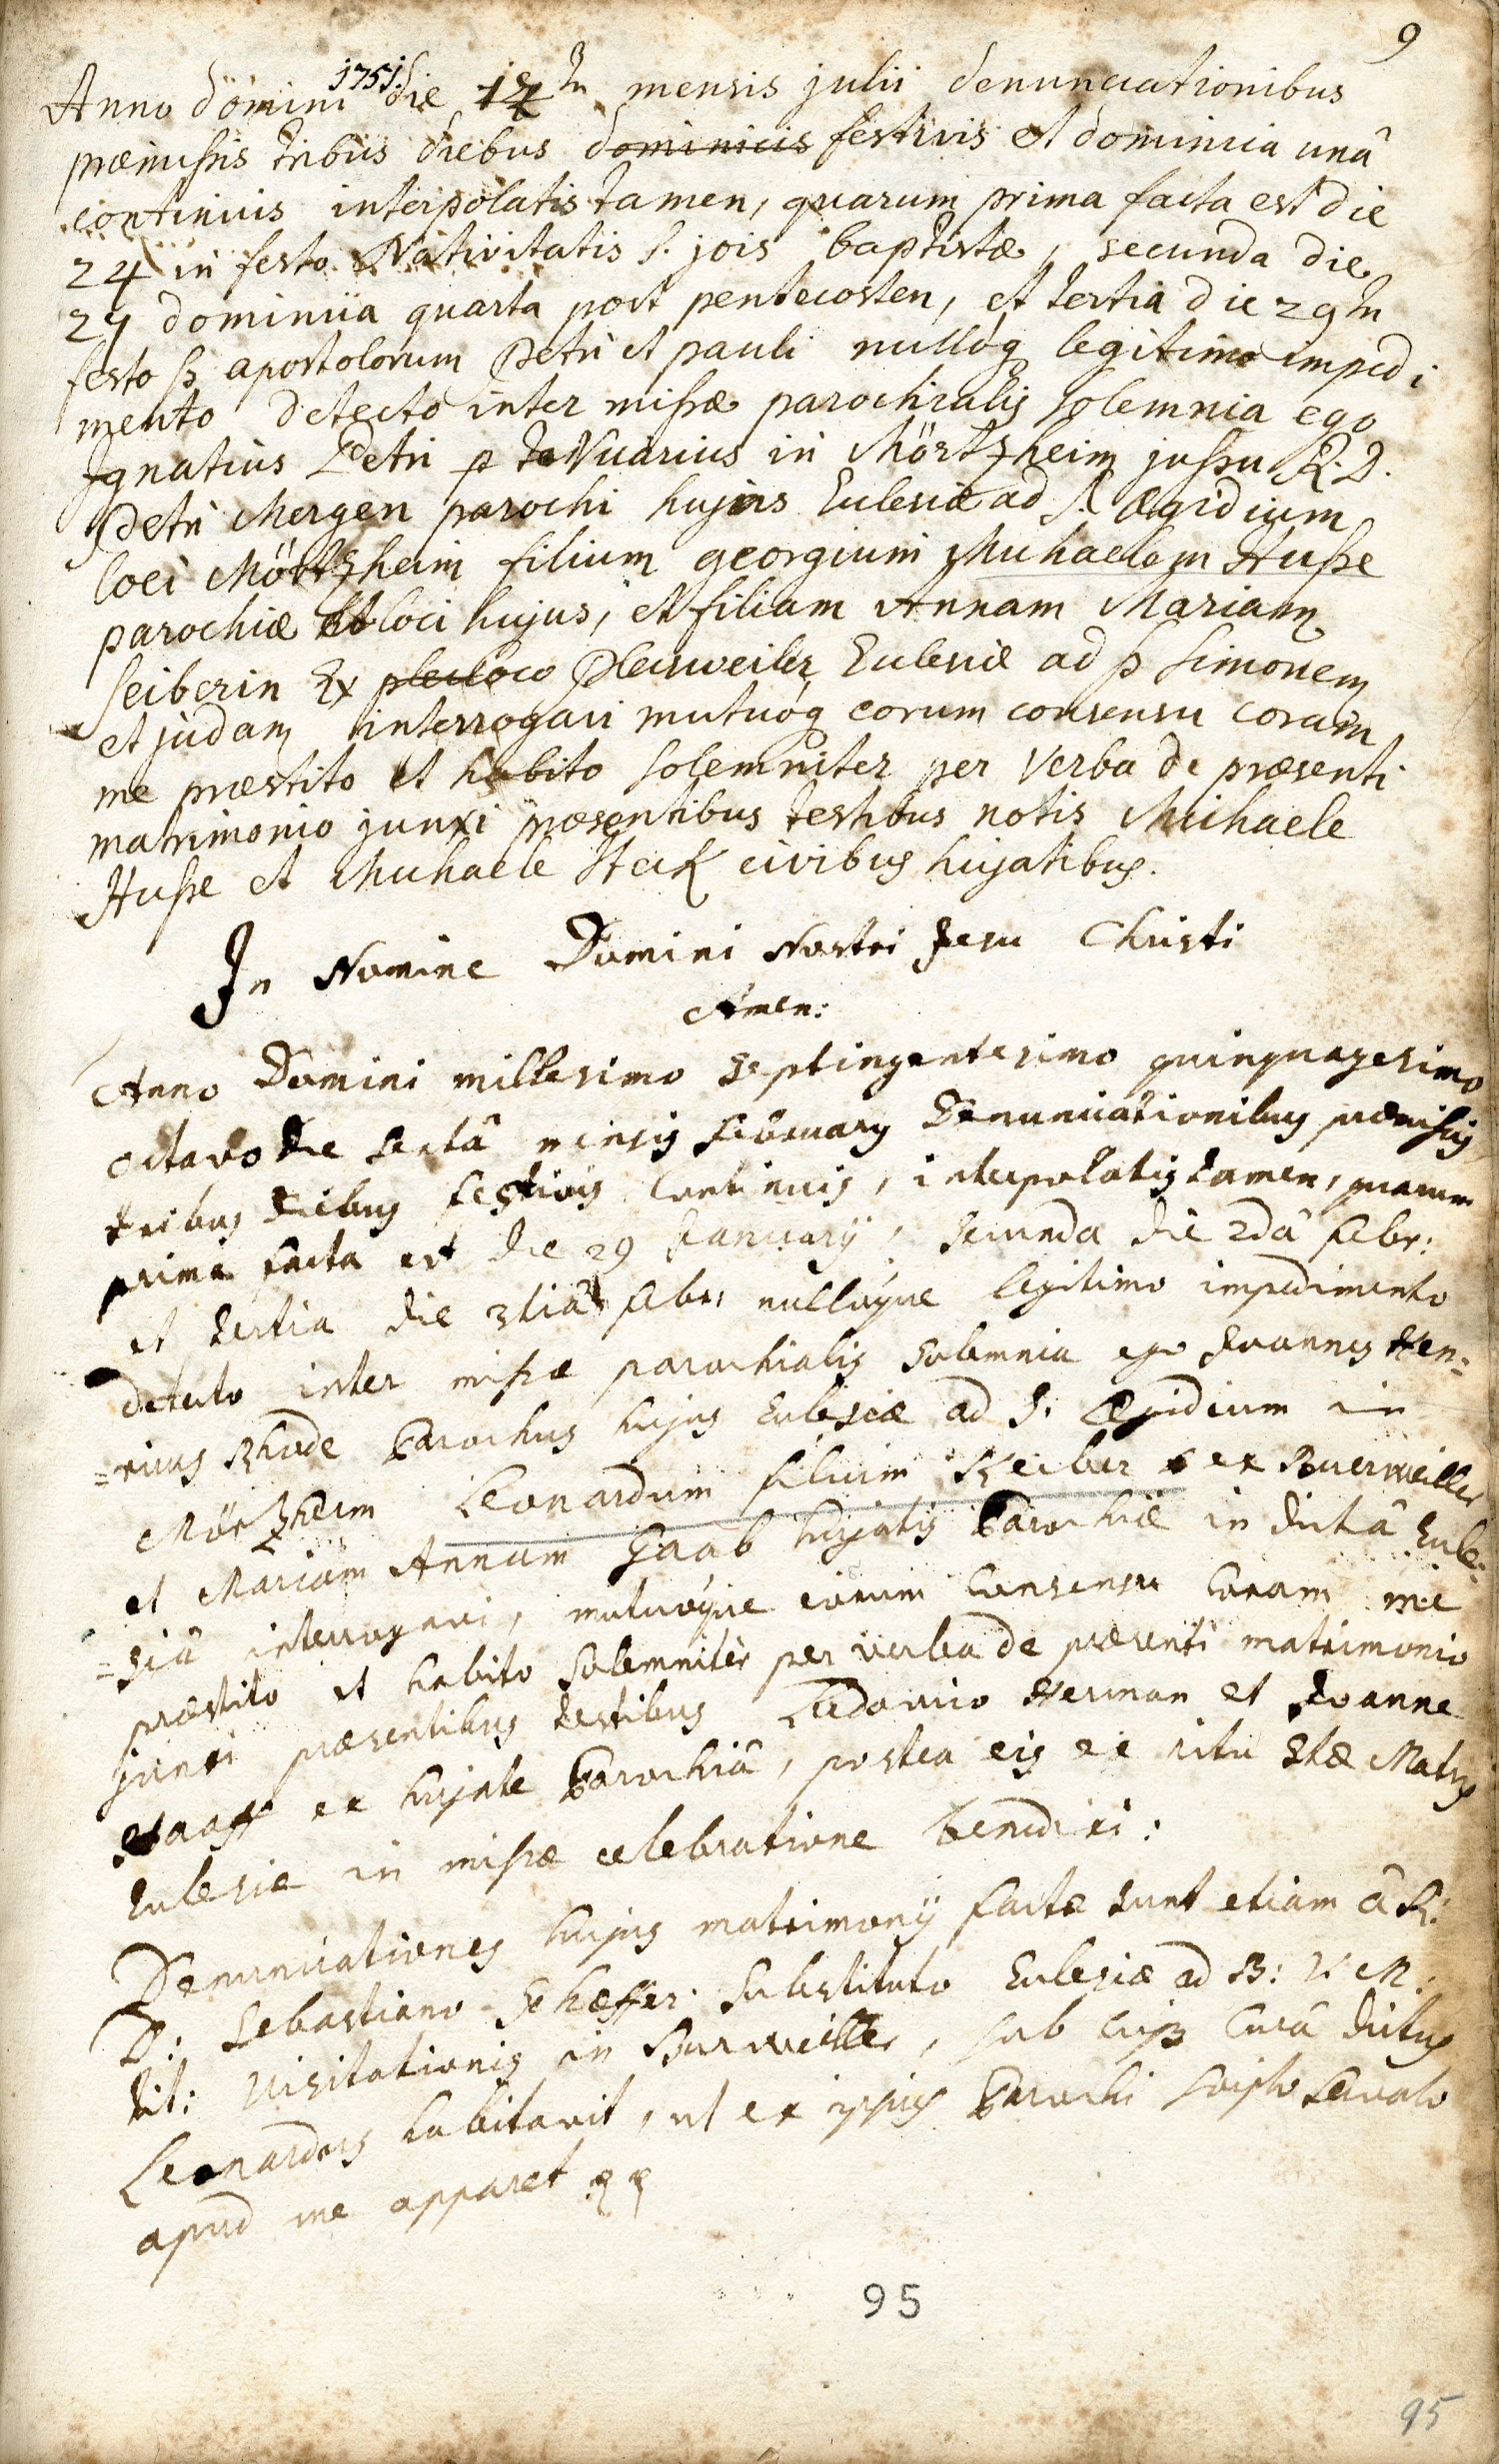 9
Anno domini 1751 die mensis julii denunciationibus
præmissis tribus diebus dominicis festivis et dominica unâ
continuis interpolatis tamen, quarum prima facta est die
24 in festo Nativitatis S. jois baptistæ, secunda die
27 dominica quarta post pentecosten, et tertia die 29 in
festo SS apostolorum Petri et pauli nullóq legitimo impedi
mento detecto inter missæ parochialis solemnia ego
Ignatius Petri p t Vicarius in Mörtzheim jussu R. D.
Petri Mergen parochi hujus Ecclesiæ ad S. Ægidium
loci Mörtzheim filium georgium Michaelem Husse
parochiæ et loci hujus, et filiam Annam Mariam
Seiberin Ex loco Pleisweiler Ecclesiæ ad SS Simonem
et judam interrogavi mutuóq eorum consensu coram
me præstito et habito solemniter per Verba de præsenti
matrimonio junxi præsentibus testibus notis Michaele
Husse et Michaele Steck civibus hujatibus.
In Nomine Domini Nostri Jesu Christi
Amen:
Anno Domini millesimo Septingentesimo quinquagesimo
octavo Die sextâ mensis February Denunciationibus præmissis
tribus Diebus festivis continuis, interpolatis tamen, quarum
prima facta est die 29 Januarÿ, secunda die 2dâ Febr:
et tertia die 3tiâ Febr: nullóque legitimo impedimento
detecto inter missæ parochialis Solemnia ego Joannes Hen=
=ricus Rhode Parochus hujus Ecclesiæ ad S. Ægidium in
Mörtzheim Leonardum filium Kreiber ex Burrweiller
et Mariam Annam Gaab hujatis Parochiæ in dictâ Eccle=
=siâ interrogavi, mutuóque eorum Consensu Coram me
præstito et habito Solemnitèr per verba de præsenti matrimonio
junxi præsentibus testibus Ludovico Herman et Joanne
Haaff ex hujate Parochiâ, postea eis ex ritu Stæ Matris
Ecclesiæ in missæ celebratione benedixi:
Denunciationes hujus matrimonÿ factæ sunt etiam â R:
D: Sebastiano Schæffer Substituto Ecclesiæ ad B: V. M.
tit: Visitationis in Burweiller, sub cujus Curâ dictus
Leonardus habitavit, ut ex ipsius Parochi scripto servato
apud me apparet
95
95